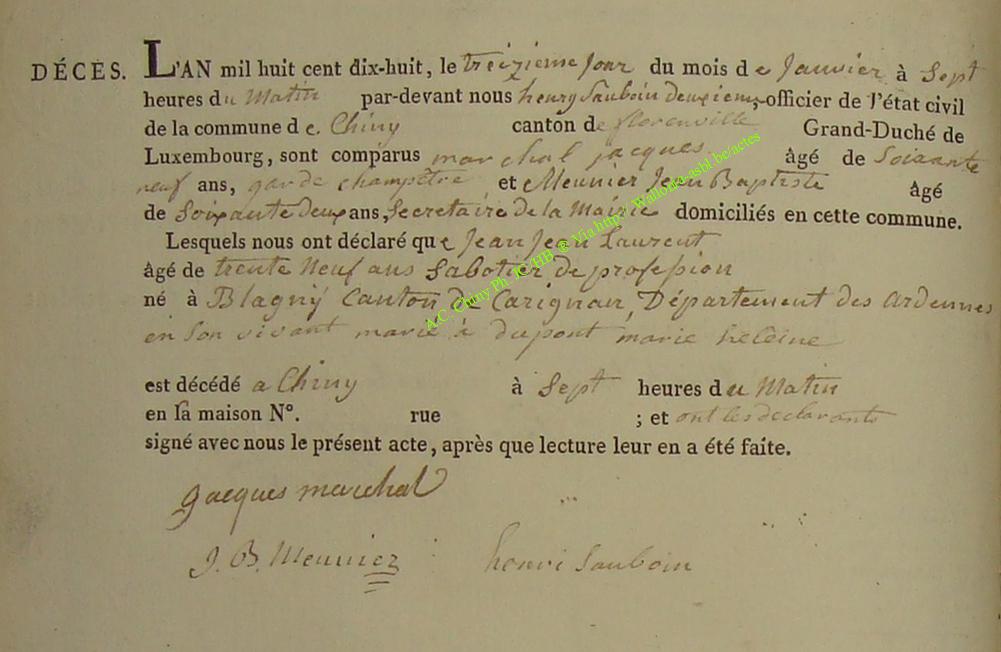 DÉCÈS. L'AN mil huit cent dix-huit, le treizieme jour du mois de Janvier à Sept
heures du Matin par-devant nous henry Sauboin deuxieme officier de l'état civil
de la commune de Chiny canton de florenville Grand-Duché de
Luxembourg, sont comparus marchal jacques âgé de Soixante
neuf ans, garde champêtre et Meunier Jean Baptiste âgé
de Soixante deux ans, Secretaire de la Mairie domiciliés en cette commune.
Lesquels nous ont déclaré que Jean Jean Laurent
âgé de trente Neuf ans Sabotier de profession
né à Blagny Canton de Carignan, Département des Ardennes
en Son vivant marié à dupont marie heleine
est décédé a Chiny à Sept heures du Matin
en sa maison N°. rue ; et ont les declarants
signé avec nous le présent acte, après que lecture leur en a été faite.
jacques marchal
J. B. Meunier henri Sauboin
A.C. Chiny Ph. JC/HB ® Via http:// Wallonia-asbl.be/actes